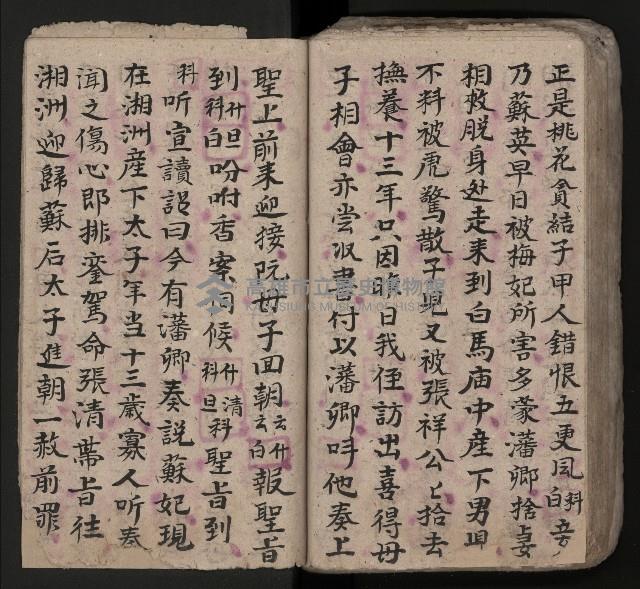 正是桃花貪結子甲人錯恨五更風科白妾
乃蘇英早日被梅妃所害多蒙潘卿捨妾
相救脫身処走来到白馬庙中産下男項
不料被虎驚散子児又被張祥公々拾去
撫養十三年只因昨日我侄訪出喜得母
子相會亦尝汉書付以藩卿呌他奏上
聖上前来迎接阮母子囬朝云云什白報聖旨
到科什白旦吩咐香案伺候科什旦清科聖旨到
科听宣讀詔曰今有藩卿奏説蘇妃現
在湘洲産下太子年当十三歳寡人听奏
闻之傷心即排鑾駕命張清帶旨往
湘洲迎歸蘇后太子進朝一赦前罪
高雄市立歷史博物館
KAOHSIUNG MUSEUM OF HISTORY